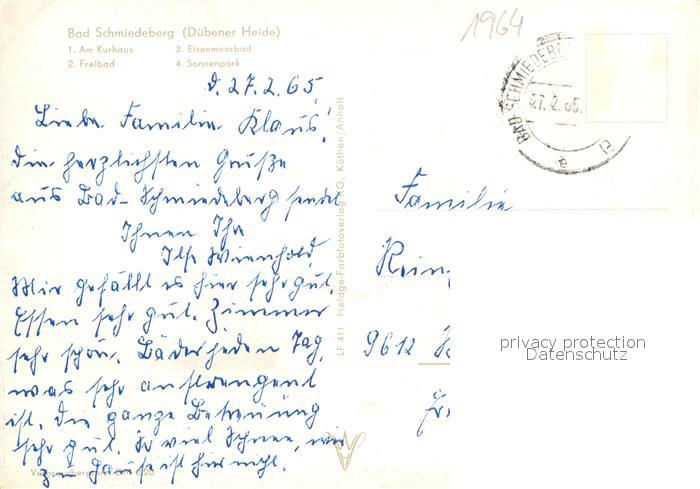 1964
Bad Schmiedeberg (Dübener Heide)
1. Am Kurhaus 3. Eisenmoorbad
2. Freibad 4. Sonnenpark
d. 27.2.65
Liebe Familie Klaus!
Die herzlichsten Grüße
aus Bad-Schmiedeberg sendet
Ihnen Ihre
Ilse Wienhold
Mir gefällt es hier sehr gut,
Essen sehr gut. Zimmer
sehr schön. Bäder jeden Tag,
was sehr anstrengend
ist. Die ganze Betreuung
sehr gut. So viel Schnee, wie
zu Hause ist hier nicht.
LF 411 Heldge-Farbfotoverlag KG, Köthen/Anhalt
BAD SCHMIEDEBE
27.2.65
Familie
Rein
9612
privacy protection
Datenschutz